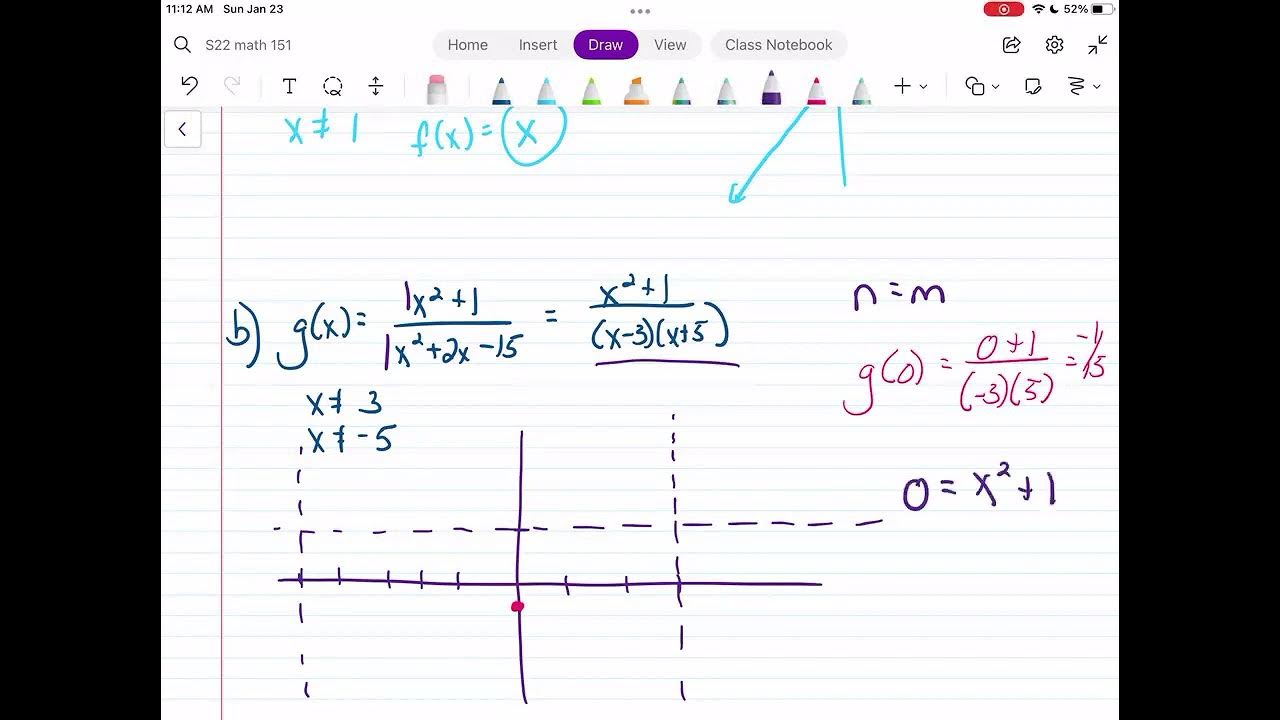 11:12 AM Sun Jan 23
52%
S22 math 151
Home Insert Draw View Class Notebook
T
x ≠ 1 f(x) = x
b) g(x) = 1x² + 1 / 1x² + 2x - 15 = x² + 1 / (x-3)(x+5)
n = m
g(0) = 0+1 / (-3)(5) = -1/15
x ≠ 3
x ≠ -5
0 = x² + 1